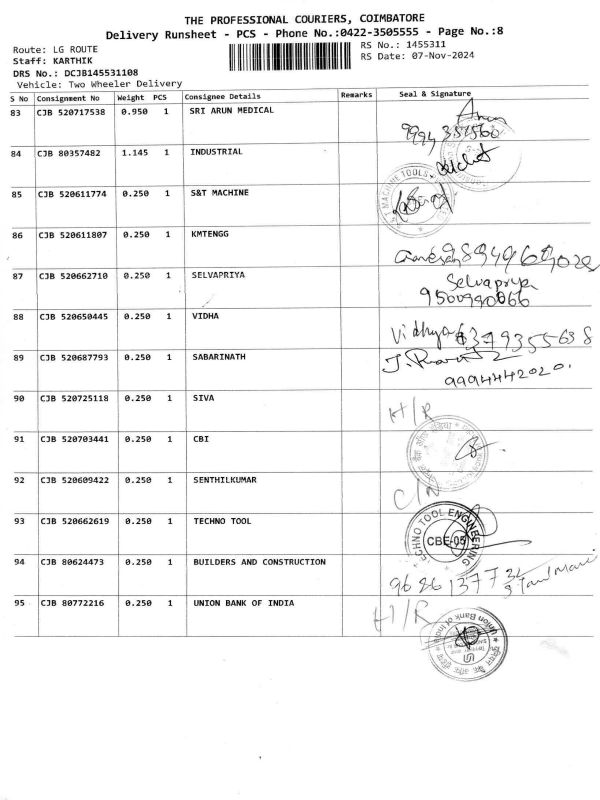 THE PROFESSIONAL COURIERS, COIMBATORE
Delivery Runsheet - PCS - Phone No.:0422-3505555 - Page No.:8
Route: LG ROUTE
RS No.: 1455311
Staff: KARTHIK
RS Date: 07-Nov-2024
DRS No.: DCJB145531108
Vehicle: Two Wheeler Delivery
S No Consignment No Weight PCS Consignee Details Remarks Seal & Signature
83 CJB 520717538 0.950 1 SRI ARUN MEDICAL
84 CJB 80357482 1.145 1 INDUSTRIAL
85 CJB 520611774 0.250 1 S&T MACHINE
MACHINE TOOLS
86 CJB 520611807 0.250 1 KMTENGG
87 CJB 520662710 0.250 1 SELVAPRIYA Selvapriya
88 CJB 520650445 0.250 1 VIDHA Vidhya 6379355638
89 CJB 520687793 0.250 1 SABARINATH
9994442020.
90 CJB 520725118 0.250 1 SIVA H/R
91 CJB 520703441 0.250 1 CBI
92 CJB 520609422 0.250 1 SENTHILKUMAR
93 CJB 520662619 0.250 1 TECHNO TOOL
TECHNO TOOL ENGINEERING
CBE-05
94 CJB 80624473 0.250 1 BUILDERS AND CONSTRUCTION
95 CJB 80772216 0.250 1 UNION BANK OF INDIA H/R
Union Bank of India